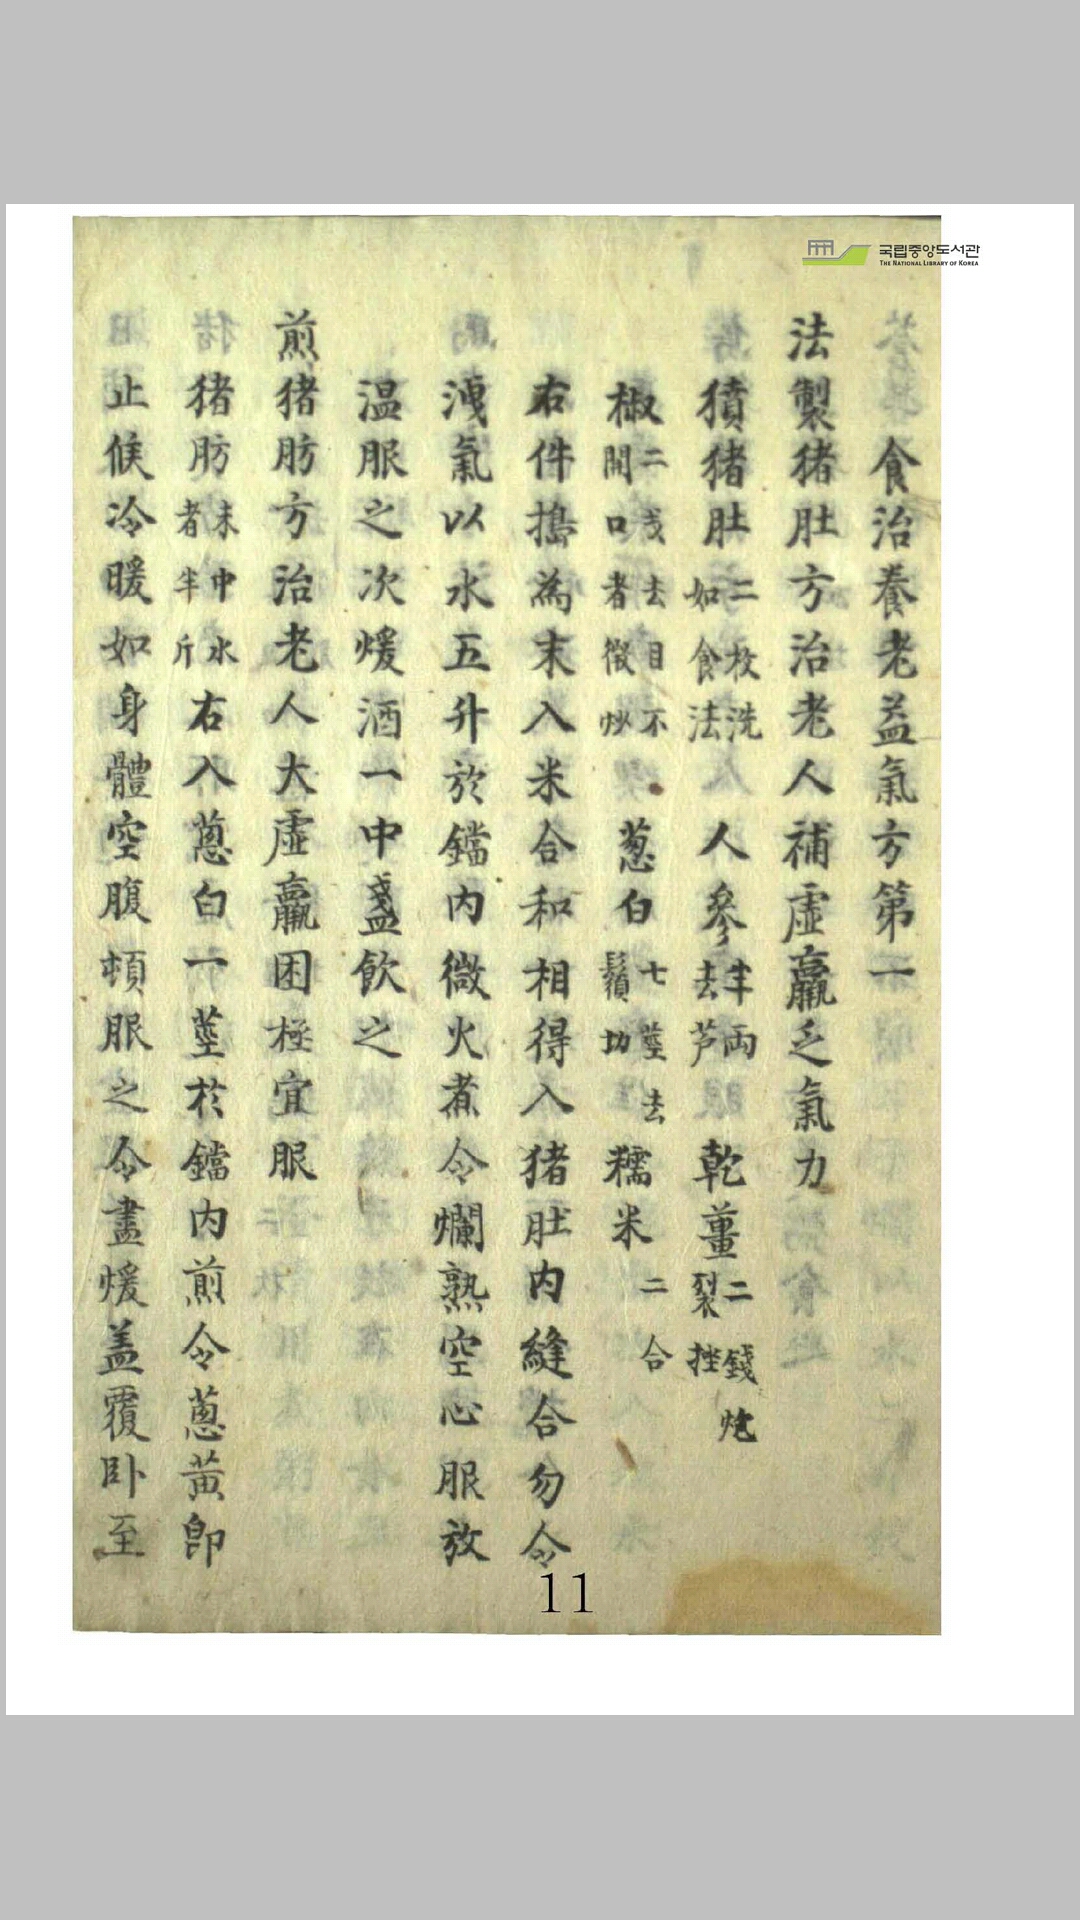 국립중앙도서관
THE NATIONAL LIBRARY OF KOREA
食治養老益氣方第一
法製猪肚方治老人補虛羸乏氣力
獖猪肚二枚洗如食法 人參半両去芦 乾薑二錢炮裂挫
椒二戋去目不開口者微炒 葱白七莖去鬚切 糯米二合
右件搗為末入米合和相得入猪肚内縫合勿令
洩氣以水五升於鐺内微火煮令爛熟空心服放
温服之次煖酒一中盞飲之
煎猪肪方治老人大虛羸困極宜服
猪肪未中水者半斤右入蔥白一莖於鐺内煎令蔥黃即
止候冷暖如身體空腹頓服之令盡煖盖覆卧至
11